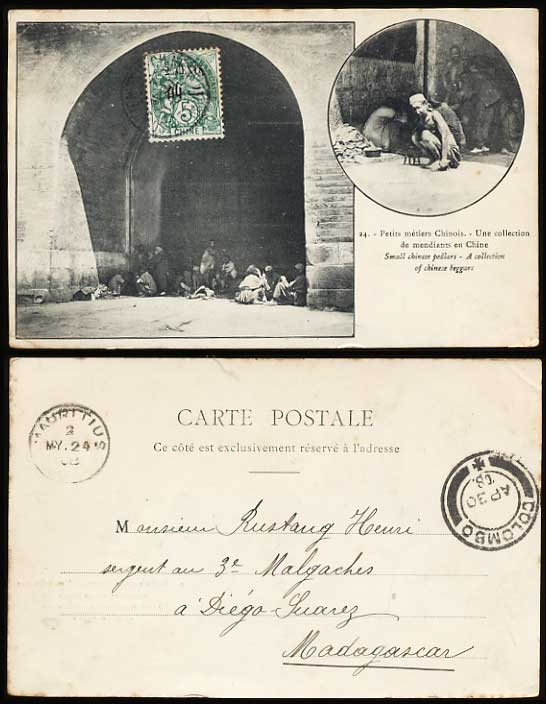 5
CHINE
24. - Petits métiers Chinois. - Une collection
de mendiants en Chine
Small chinese pedlars - A collection
of chinese beggars
CARTE POSTALE
Ce côté est exclusivement réservé à l'adresse
MAURITIUS
2
MY. 24
08
COLOMBO
AP 30
08
Monsieur Rustang Henri
sergent au 3e Malgaches
à Diégo-Suarez
Madagascar